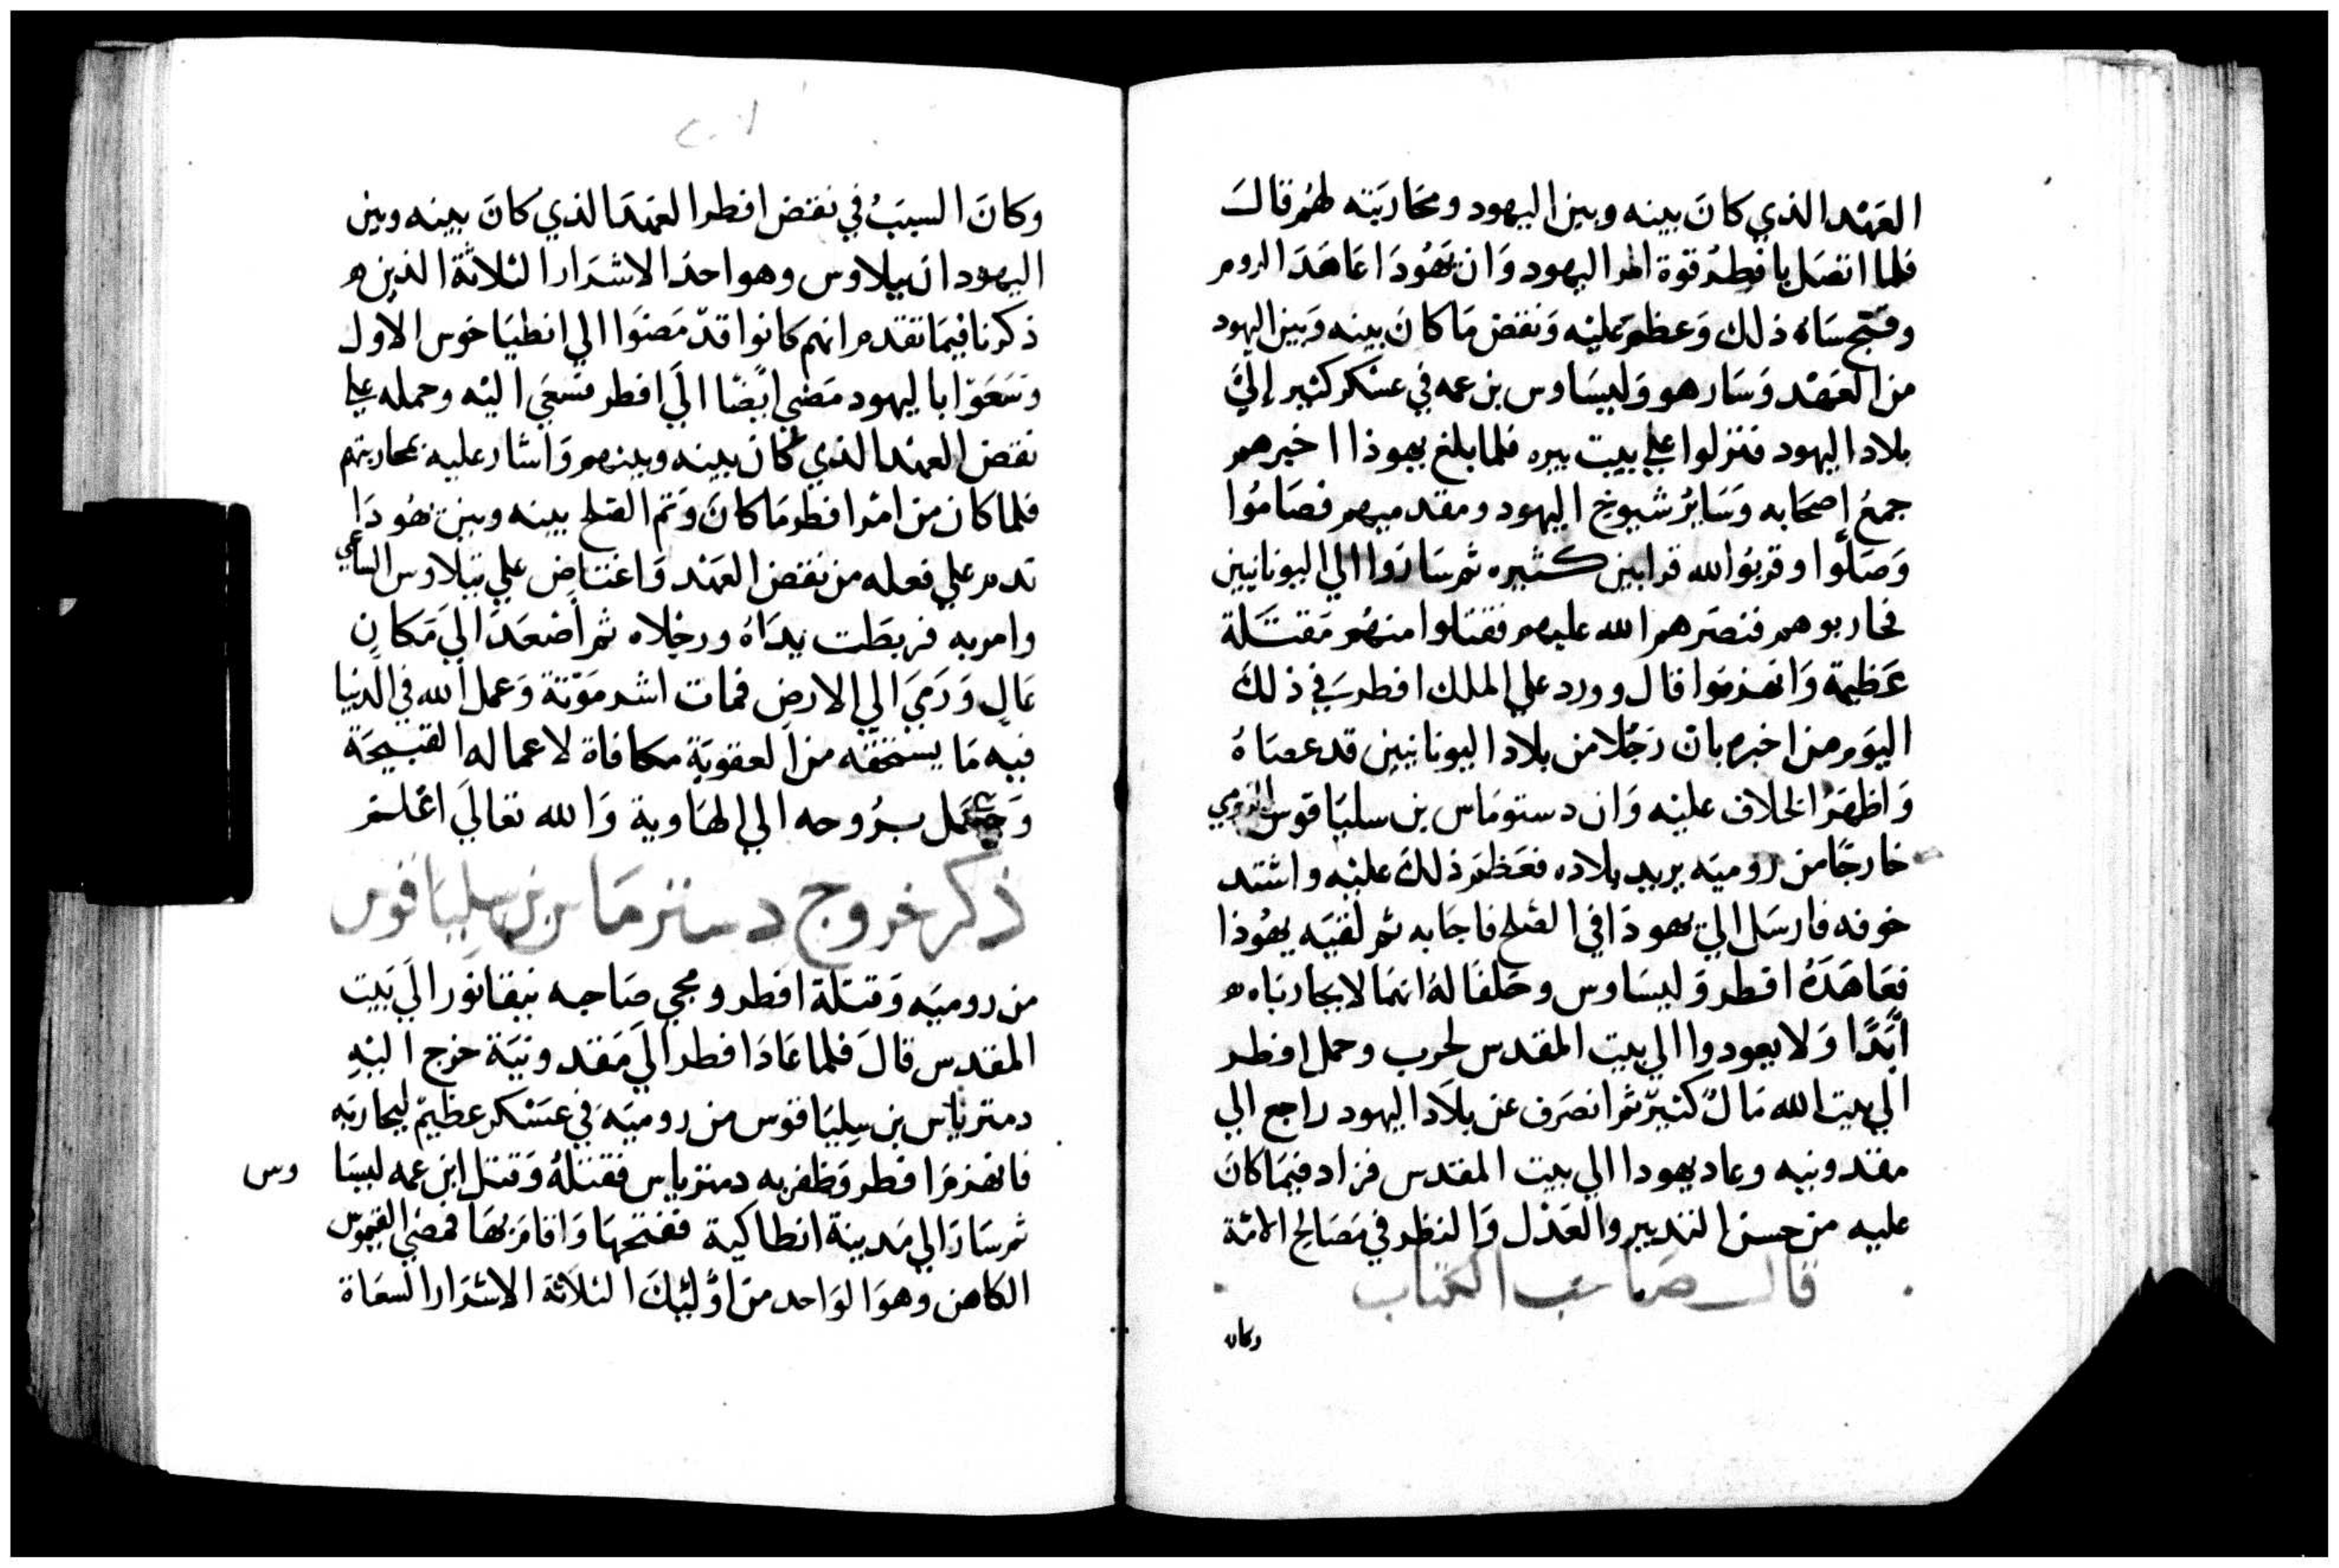 العَهْد الذي كانَ بينه وبين اليهود ومحَاربَته لهُم قالَ
فلما اتصَل بافطرْ قوة امر اليهود وَان يَهُودَا عَاهَدَ الروم
وفتح سَاهُ ذلك وَعظم عَليْه وَنقض مَا كانَ بينه وَبين اليهود
من العَهْد وَسَار هو وَليسَاوس بن عمه في عسْكر كثير إليَ
بلاد اليهود فنزلوا علي بيت بيره فلما بلغ يهوذا اخبرهم
جمعَ اصحَابه وَسَايرُ شيوخ اليهود ومقدميهم فصَامُوا
وَصَلّوا وقربُوا لله قرابين كثيره ثم سَارَوا الي اليونانيين
فحاربوهم فنصَرهم الله عليهم فقتلوا منهُم مَقتَلة
عَظيمة وَانهزمَوا قال وورد علي الملك افطرسَ في ذلكَ
اليوَم من اخبره بان رَجُلا من بلاد اليونانيين قد عصَاهُ
وَاظهَرُ الخلاف عليْه وَان دستومَاس بن سليَاقوس الرومي
خارجًا من روميَه يريد بلاده فعَظم ذلكَ عليْه واشتد
خوفه فارسَل الي يهودَا في الصُلح فاجَابه ثم لقيَه يهُوذا
فعَاهَدَهُ افطر وَليسَاوس وحَلفَا لهُ انهمَا لا يحاربَاه
أبَدًا وَلا يعودوا الي بيت المقدس لحرب وحمل افطر
الي بيت الله مَالٌ كثيرٌ ثم انصَرف عن بلاَد اليهود راجع الي
مقدونيه وعاد يهودا الي بيت المقدس فزاد فيمَا كانَ
عليه من حسن التدبير والعَدْل وَالنظر في مصَالح الامّة
قالَ صَاحب الكتاب
وكان
وكانَ السببُ في نقض افطر العهدَ الذي كانَ بينه وبين
اليهود ان بيلاوس وهو احدَ الاشرَار الثلاثَة الذين
ذكرنا فيمَا تقدم انهم كانوا قدّ مَضوَا الي انطيَاخوس الاول
وَسَعَوْا باليهود مَضي ايضًا الَي افطر فسَعَي اليْه وحمله علي
نقض العهد الذي كانَ بينه وبينهم وَاشار عليه بمحاربتهم
فلما كان من امْر افطر مَا كانَ وَتم الصلح بينه وبين يَهُودَا
ندم علي فعله من نقض العَهْد وَاغتاض علي بيلاوس الساعي
وامر به فربطَت يدَاهُ ورجْلاه ثم أصْعَدَ اليَ مَكانٍ
عَالٍ وَرَميَ الي الارضِ فمات اشر مَوْتة وَعمل الله في الدنيا
فيه مَا يستحقه من العقوبَة مكافاة لاعماله القبيحَة
وَعجل برُوحه الي الهَاوية وَالله تعاليَ اعْلم
ذكر خروج دستزمَاس بن سِليَاقوس
من روميَه وَقتلة افطر ومجي صَاحبه نيقانوَر الَي بَيت
المقدس قالَ فلما عَادَا فطر اليَ مَقدونيَة خرج اليْهِ
دمتزياس بن سِليَاقوس من روميَه في عسْكرٍ عظيمٌ ليحاربَه
فانهزمَ افطر وَظفر به دمتزياس فقتلهُ وَقتل ابن عمه ليسَا وس
ثم سَارَ الي مَدينة انطاكية ففتحهَا وَاقامَ بهَا فمضي القيموس
الكاهن وهوَ الوَاحد منَ اوُليْكَ الثلاَثة الاشرَار السعَاة